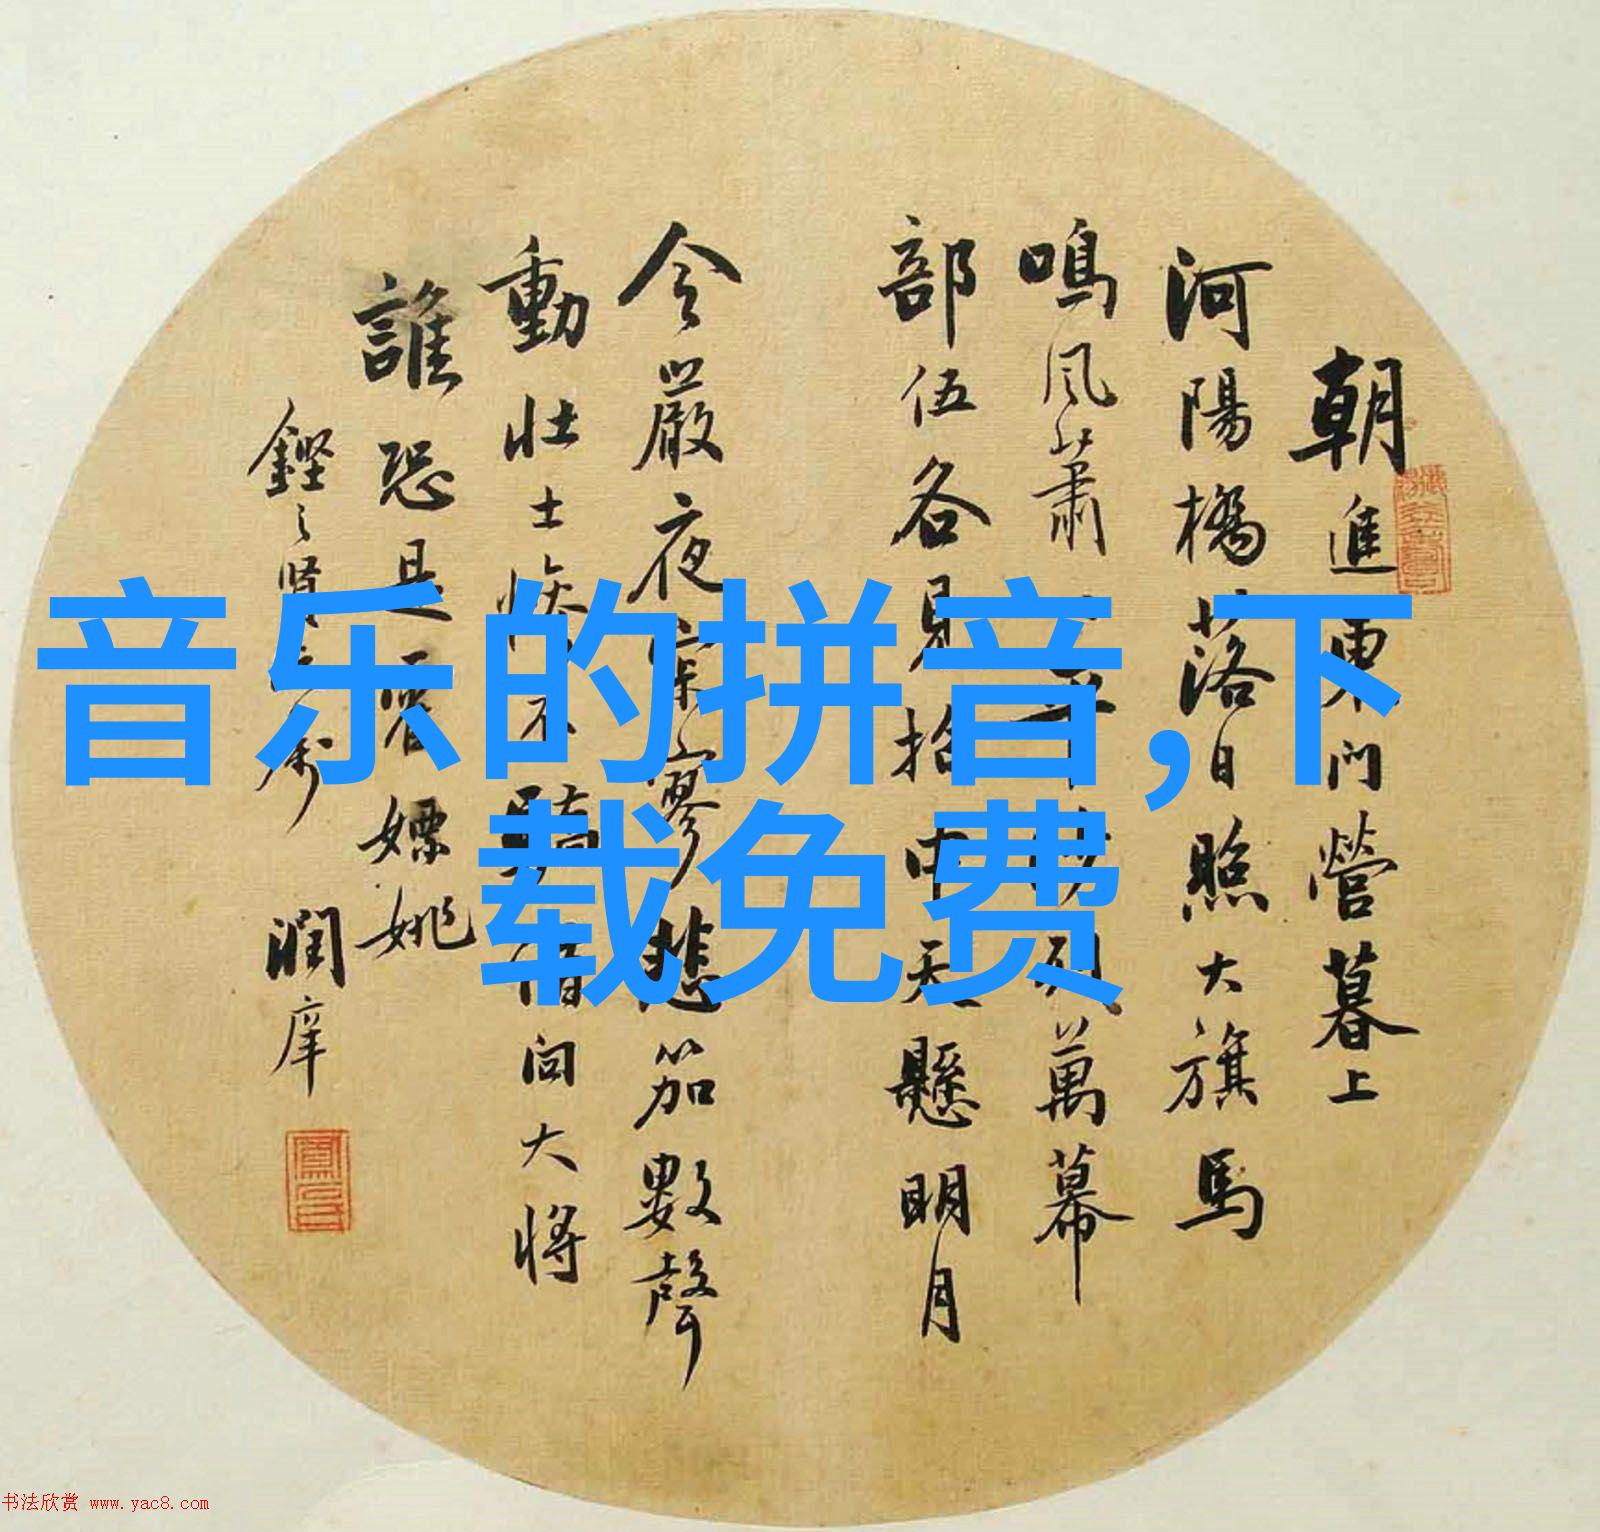 朝進東門營暮上
河陽橋落日照大旗馬
鳴風蕭平沙列萬幕
部伍各見招中天懸明月
令嚴夜寂寥悲笳數聲
動壮士慘不驕借問大將
誰恐是霍嫖姚
潤庠
音乐的拼音,下
载免费
书法欣赏 www.yac8.com